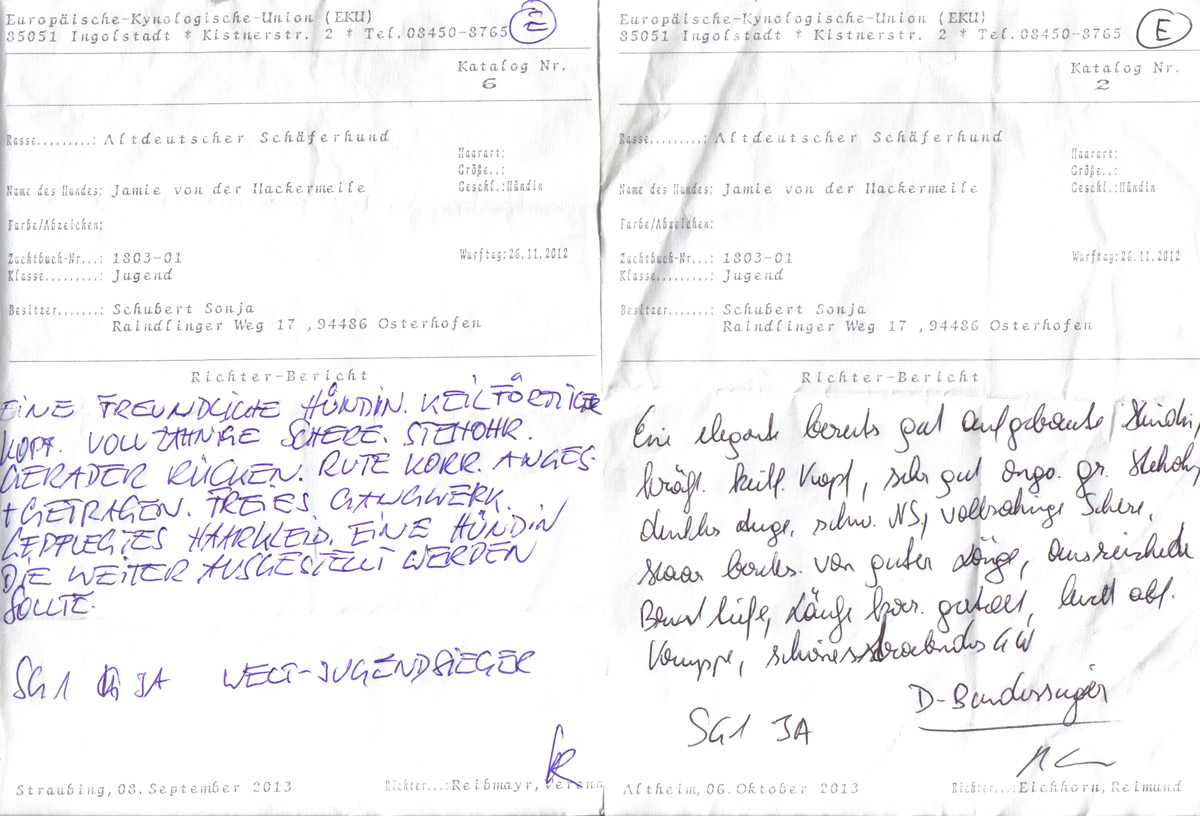 Europäische-Kynologische-Union (EKU)
85051 Ingolstadt * Kistnerstr. 2 * Tel.08450-8765
E
Katalog Nr.
6
Rasse.........: Altdeutscher Schäferhund
Haarart:
Größe..:
Name des Hundes: Jamie von der Hackermeile
Geschl.:Hündin
Farbe/Abzeichen:
Zuchtbuch-Nr...: 1803-01
Wurftag:26.11.2012
Klasse.........: Jugend
Besitzer.......: Schubert Sonja
Raindlinger Weg 17 ,94486 Osterhofen
Richter-Bericht
EINE FREUNDLICHE HÜNDIN. KEILFÖRMIGER
KOPF. VOLLZAHNIGE SCHERE. STEHOHR.
GERADER RÜCKEN. RUTE KORR. ANGES.
+ GETRAGEN. FREIES GANGWERK.
GEPFLEGTES HAARKLEID. EINE HÜNDIN
DIE WEITER AUSGESTELLT WERDEN
SOLLTE.
SG1 JA WELT-JUGENDSIEGER
Straubing, 08. September 2013
Richter...:Reibmayr, Verena
Europäische-Kynologische-Union (EKU)
85051 Ingolstadt * Kistnerstr. 2 * Tel.08450-8765
E
Katalog Nr.
2
Rasse.........: Altdeutscher Schäferhund
Haarart:
Größe..:
Name des Hundes: Jamie von der Hackermeile
Geschl.:Hündin
Farbe/Abzeichen:
Zuchtbuch-Nr...: 1803-01
Wurftag:26.11.2012
Klasse.........: Jugend
Besitzer.......: Schubert Sonja
Raindlinger Weg 17 ,94486 Osterhofen
Richter-Bericht
Eine elegante bereits gut aufgebaute Hündin,
kräft. keilf. Kopf, sehr gut ange. gr. Stehohr,
dunkles Auge, schw. NS, vollzahnige Schere,
Haar bereits von guter Länge, ausreichende
Brusttiefe, Läufe korr. gestellt, leicht abf.
Kruppe, schönes GW
D-Bundessieger
SG1 JA
Altheim, 06. Oktober 2013
Richter...:Eichhorn, Reimund